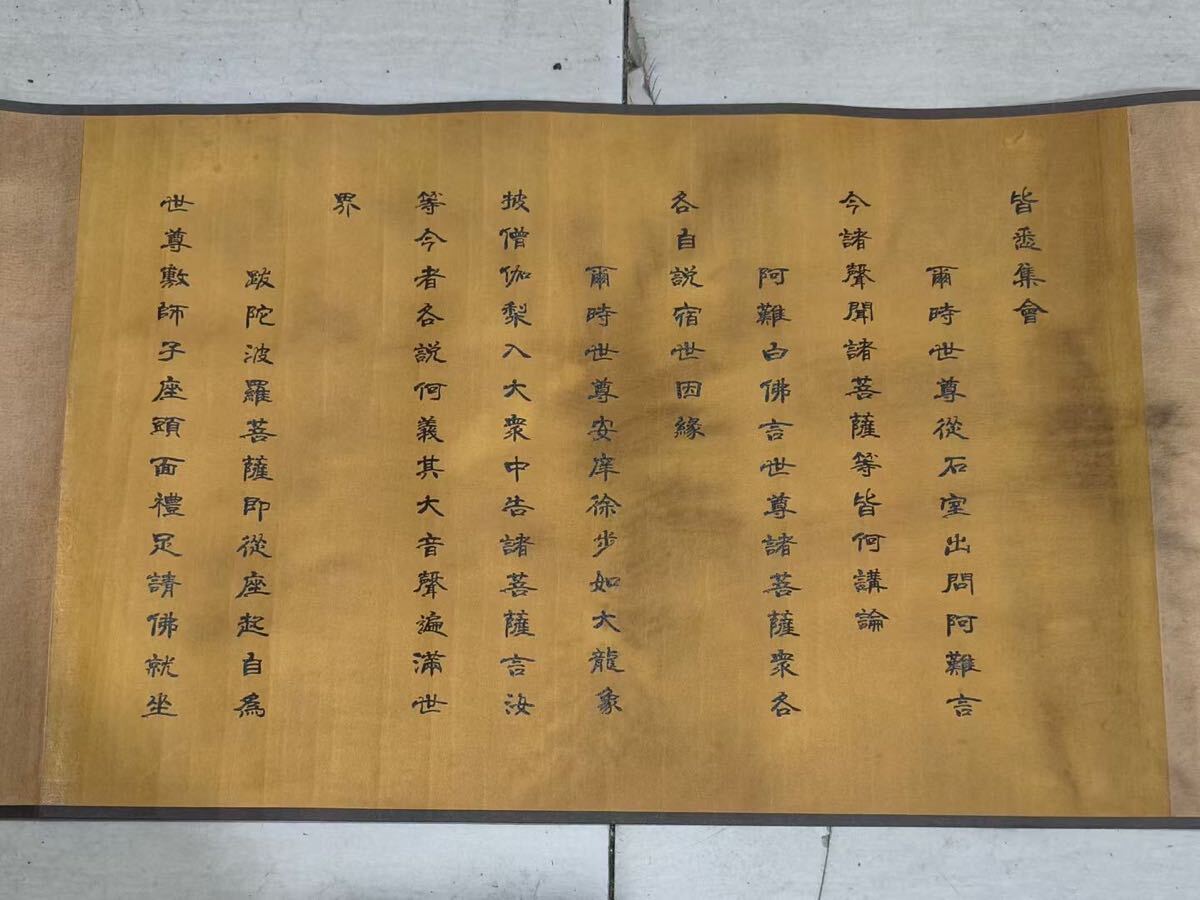 皆悉集會
爾時世尊從石室出問阿難言
今諸聲聞諸菩薩等皆何講論
阿難白佛言世尊諸菩薩衆各
各自說宿世因緣
爾時世尊安庠徐步如大龍象
披僧伽梨入大衆中告諸菩薩言汝
等今者各說何義其大音聲遍滿世
界
跋陀波羅菩薩即從座起自為
世尊敷師子座頭面禮足請佛就坐